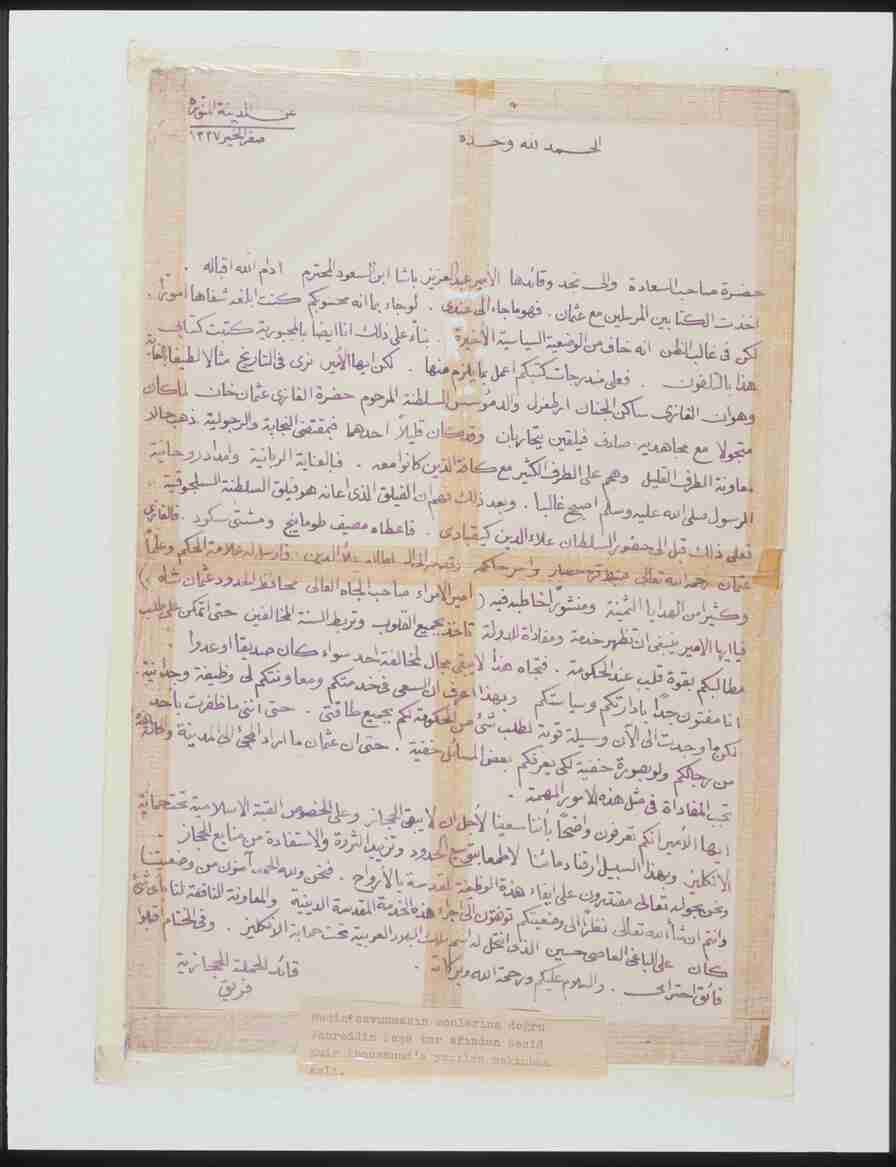 عن المدينة المنورة
صفر الخير ١٣٣٧
الحمد لله وحده
حضرة صاحب السعادة والى نجد وقائدها الأمير عبدالعزيز باشا ابن السعود المحترم ادام الله اقباله .
اخذت الكتابين المرسلين مع عثمان . فهو ما جاء الى عندى . لو جاء بما انه محسوبكم كنت ابلغه شفاها امورا .
لكن فى غالب الظن انه خاف من الوضعية السياسية الأخيرة . بناء على ذلك انا ايضا بالمجبورية كتبت كتابى
هذا بالتلفون . فعلى مندرجات كتبكم اعمل بما يلزم منها . لكن ايها الأمير نرى فى التاريخ مثالا لطيفا للغاية
وهو ان الغازى ساكن الجنان ارطغرل والد مؤسس السلطنة المرحوم حضرة الغازى عثمان خان لما كان
متجولا مع مجاهديه صادف فيلقين يتحاربان وقد كان قليلاً احدهما فبمقتضى النجابة والرجولية ذهب حالا
معاونة الطرف القليل وهجم على الطرف الكثير مع كافة الذين كانوا معه . فبالعناية الربانية وامداد روحانية
الرسول صلى الله عليه وسلم اصبح غالبا . وبعد ذلك فهم ان الفيلق الذى اعانه هو فيلق السلطنة السلجوقية .
فعلى ذلك قبل الى حضور السلطان علاء الدين كيقبادى . فاعطاه مصيف طومانيج ومشتى سكود . فالغازى
عثمان رحمه الله تعالى ضبط قره حصار واسر حاكمهم علاء الدين . فارسل له علامة الحكم وعلماً
وكثيرا من الهدايا الثمينة ومنشوراً خاطبه فيه ( امير الامراء صاحب الجاه العالى محافظ الحدود عثمان شاه )
فيا ايها الامير ينبغى ان تظهر خدمة ومفاداة للدولة تأخذ بجميع القلوب وتربط السنة المخالفين حتى اتمكن على طلب
مطالبكم بقوة قلب عند الحكومة . فتجاه هذا لا يبقى مجال لمخالفة احد سواء كان صديقا او عدوا .
انا مفتون جدا بادارتكم وسياستكم وبهذا اعرف ان السعى فى خدمتكم ومعاونتكم لى وظيفة وجدانية .
لكن ما وجدت الى الآن وسيلة قوية لطلب شئ من الحكومة لكم بجميع طاقتى . حتى اننى ما ظفرت بأحد
من رجالكم ولو بصورة خفية لكى يعرفكم بعض المسائل خفية . حتى ان عثمان ما اراد المجئ الى المدينة والحالة
تجب المفاداة فى مثل هذه الامور المهمة .
ايها الأمير انكم تعرفون واضحاً بأننا سعينا لأجل ان لا يبقى الحجاز وعلى الخصوص القبة الاسلامية تحت حماية
الانكليز وبهذا السبيل ارقنا دمائنا لا طمعا بتوسيع الحدود وتزييد الثروة والاستفادة من منابع الحجاز .
ونحن بحوله تعالى مقتدرون على ايفاء هذه الوظيفة المقدسة بالأرواح . فنحن ولله الحمد آمنون من وضعيتنا
وانتم ان شاء الله تعالى نظراً الى وضعيتكم توفقون الى اجراء هذه الخدمة المقدسة الدينية والمعاونة النافعة لنا بأى شئ
كان على الباغى العاصى حسين الذى انتحل له اسم ملك البلاد العربية تحت حماية الانكليز . وفى الختام اقبلوا
فائق احترامى . والسلام عليكم ورحمة الله وبركاته .
قائد الحملة الحجازية
فريق
sonlarına doğru